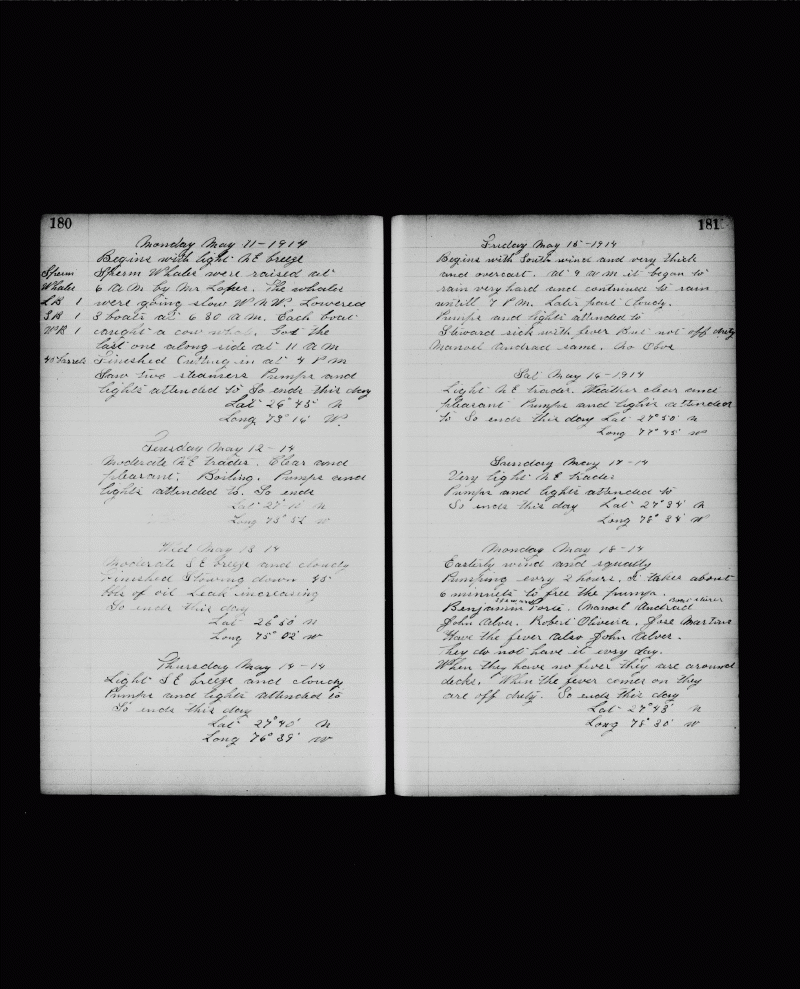 180
Monday May 11-1914
Begins with light NE breeze
Sperm Sperm Whales were raised at
Whales 6 A M by Mr Lopes. The whales
L B 1 were going slow W N W. Lowered
S B 1 3 boats at 6 30 A M. Each boat
W B 1 caught a cow whale. Got the
last one along side at 11 A M
45 barrels Finished Cutting in at 4 P M
Saw two steamers Pumps and
lights attended to So ends this day
Lat 26° 45' N
Long 73° 16' W.
Tuesday May 12-14
Moderate N E trades. Clear and
pleasant. Boiling. Pumps and
lights attended to. So ends
Lat 27° 10' N
Long 73° 52' W
Wed May 13 14
Moderate S E breeze and cloudy
Finished Stowing down 45
bbls of oil Leak increasing
So ends this day
Lat 26° 50' N
Long 75° 02' W
Thursday May 14-14
Light S E breeze and cloudy
Pumps and lights attended to
So ends this day
Lat 27° 40' N
Long 76° 39' W
181
Friday May 15-1914
Begins with South wind and very thick
and overcast. At 9 A M it began to
rain very hard and continued to rain
untill 7 P M. Later part Cloudy.
Pumps and lights attended to
Steward sick with fever But not off duty
Manoel Andrad same. No Obs
Sat May 16-1914
Light N E trades. Weather clear and
pleasant Pumps and lights attended
to So ends this day Lat 27° 50' N
Long 77° 45' W
Sunday May 17-14
Very light N E trades
Pumps and lights attended to
So ends this day Lat 27° 34' N
Long 78° 34' W
Monday May 18-14
Easterly wind and squally
Pumping every 2 hours, it takes about
6 minuets to free the pumps.
Steward boat steerer
Benjamin Manoel Andrad
John Alves. Robert Oliveira, Jose Martins
Have the fever also John Alves.
They do not have it evry day.
When they have no fever they are around
decks. When the fever comes on they
are off duty. So ends this day
Lat 27° 43' N
Long 78° 30' W